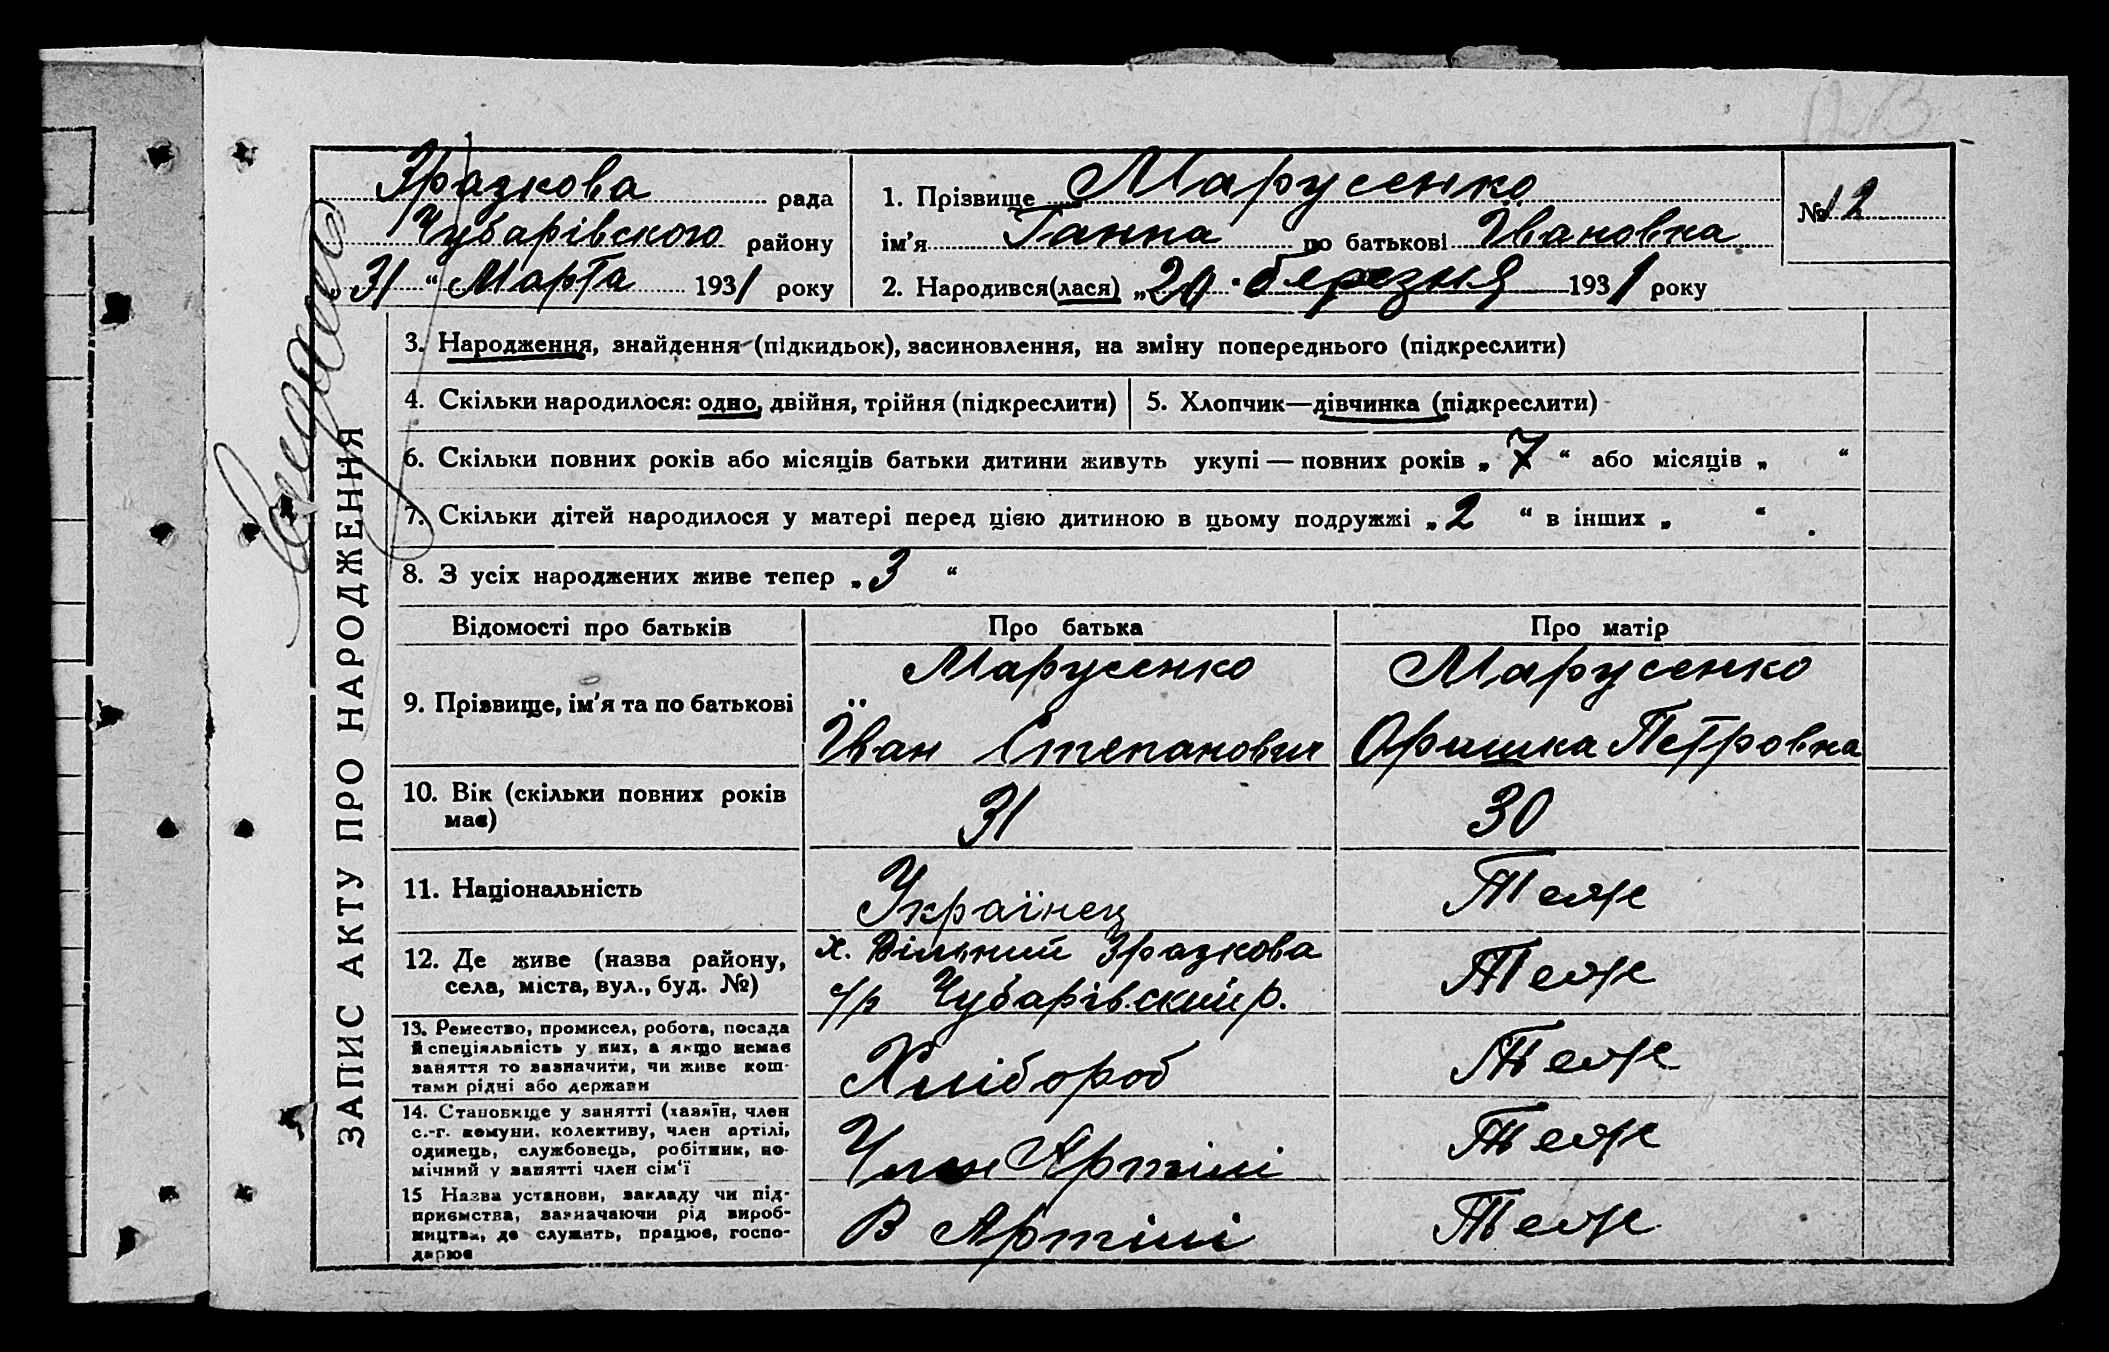 Зразкова рада
Чубарівського району
31 " Марта 1931 року
1. Прізвище Марусенко
ім'я Ганна по батькові Івановка
2. Народився(лася) „20" березня 1931 року
№ 12
ЗАПИС АКТУ ПРО НАРОДЖЕННЯ
3. Народження, знайдення (підкидьок), засиновлення, на зміну попереднього (підкреслити)
4. Скільки народилося: одно, двійня, трійня (підкреслити)
5. Хлопчик—дівчинка (підкреслити)
6. Скільки повних років або місяців батьки дитини живуть укупі — повних років „ 7 " або місяців „ "
7. Скільки дітей народилося у матері перед цією дитиною в цьому подружжі „ 2 " в інших „ "
8. З усіх народжених живе тепер „ 3 "
Відомості про батьків Про батька Про матір
9. Прізвище, ім'я та по батькові
Марусенко
Їван Степанович
Марусенко
Оришка Петровна
10. Вік (скільки повних років
має)
31
30
11. Національність
Українец
Теж
12. Де живе (назва району,
села, міста, вул., буд. №)
х. Вільний Зразкова
с/р Чубарівский р.
Теж
13. Ремество, промисел, робота, посада
й спеціяльність у них, а якщо немає
заняття то зазначити, чи живе кош-
тами рідні або держави
Хлібороб
Теж
14. Становище у занятті (хазяїн, член
с.-г. комуни, колективу, член артілі,
одинець, службовець, робітник, по-
мічний у занятті член сім'ї
Член Артілі
Теж
15 Назва установи, закладу чи під-
приємства, зазначаючи рід вироб-
ництва, де служить, працює, госпо-
дарює
В Артілі
Теж